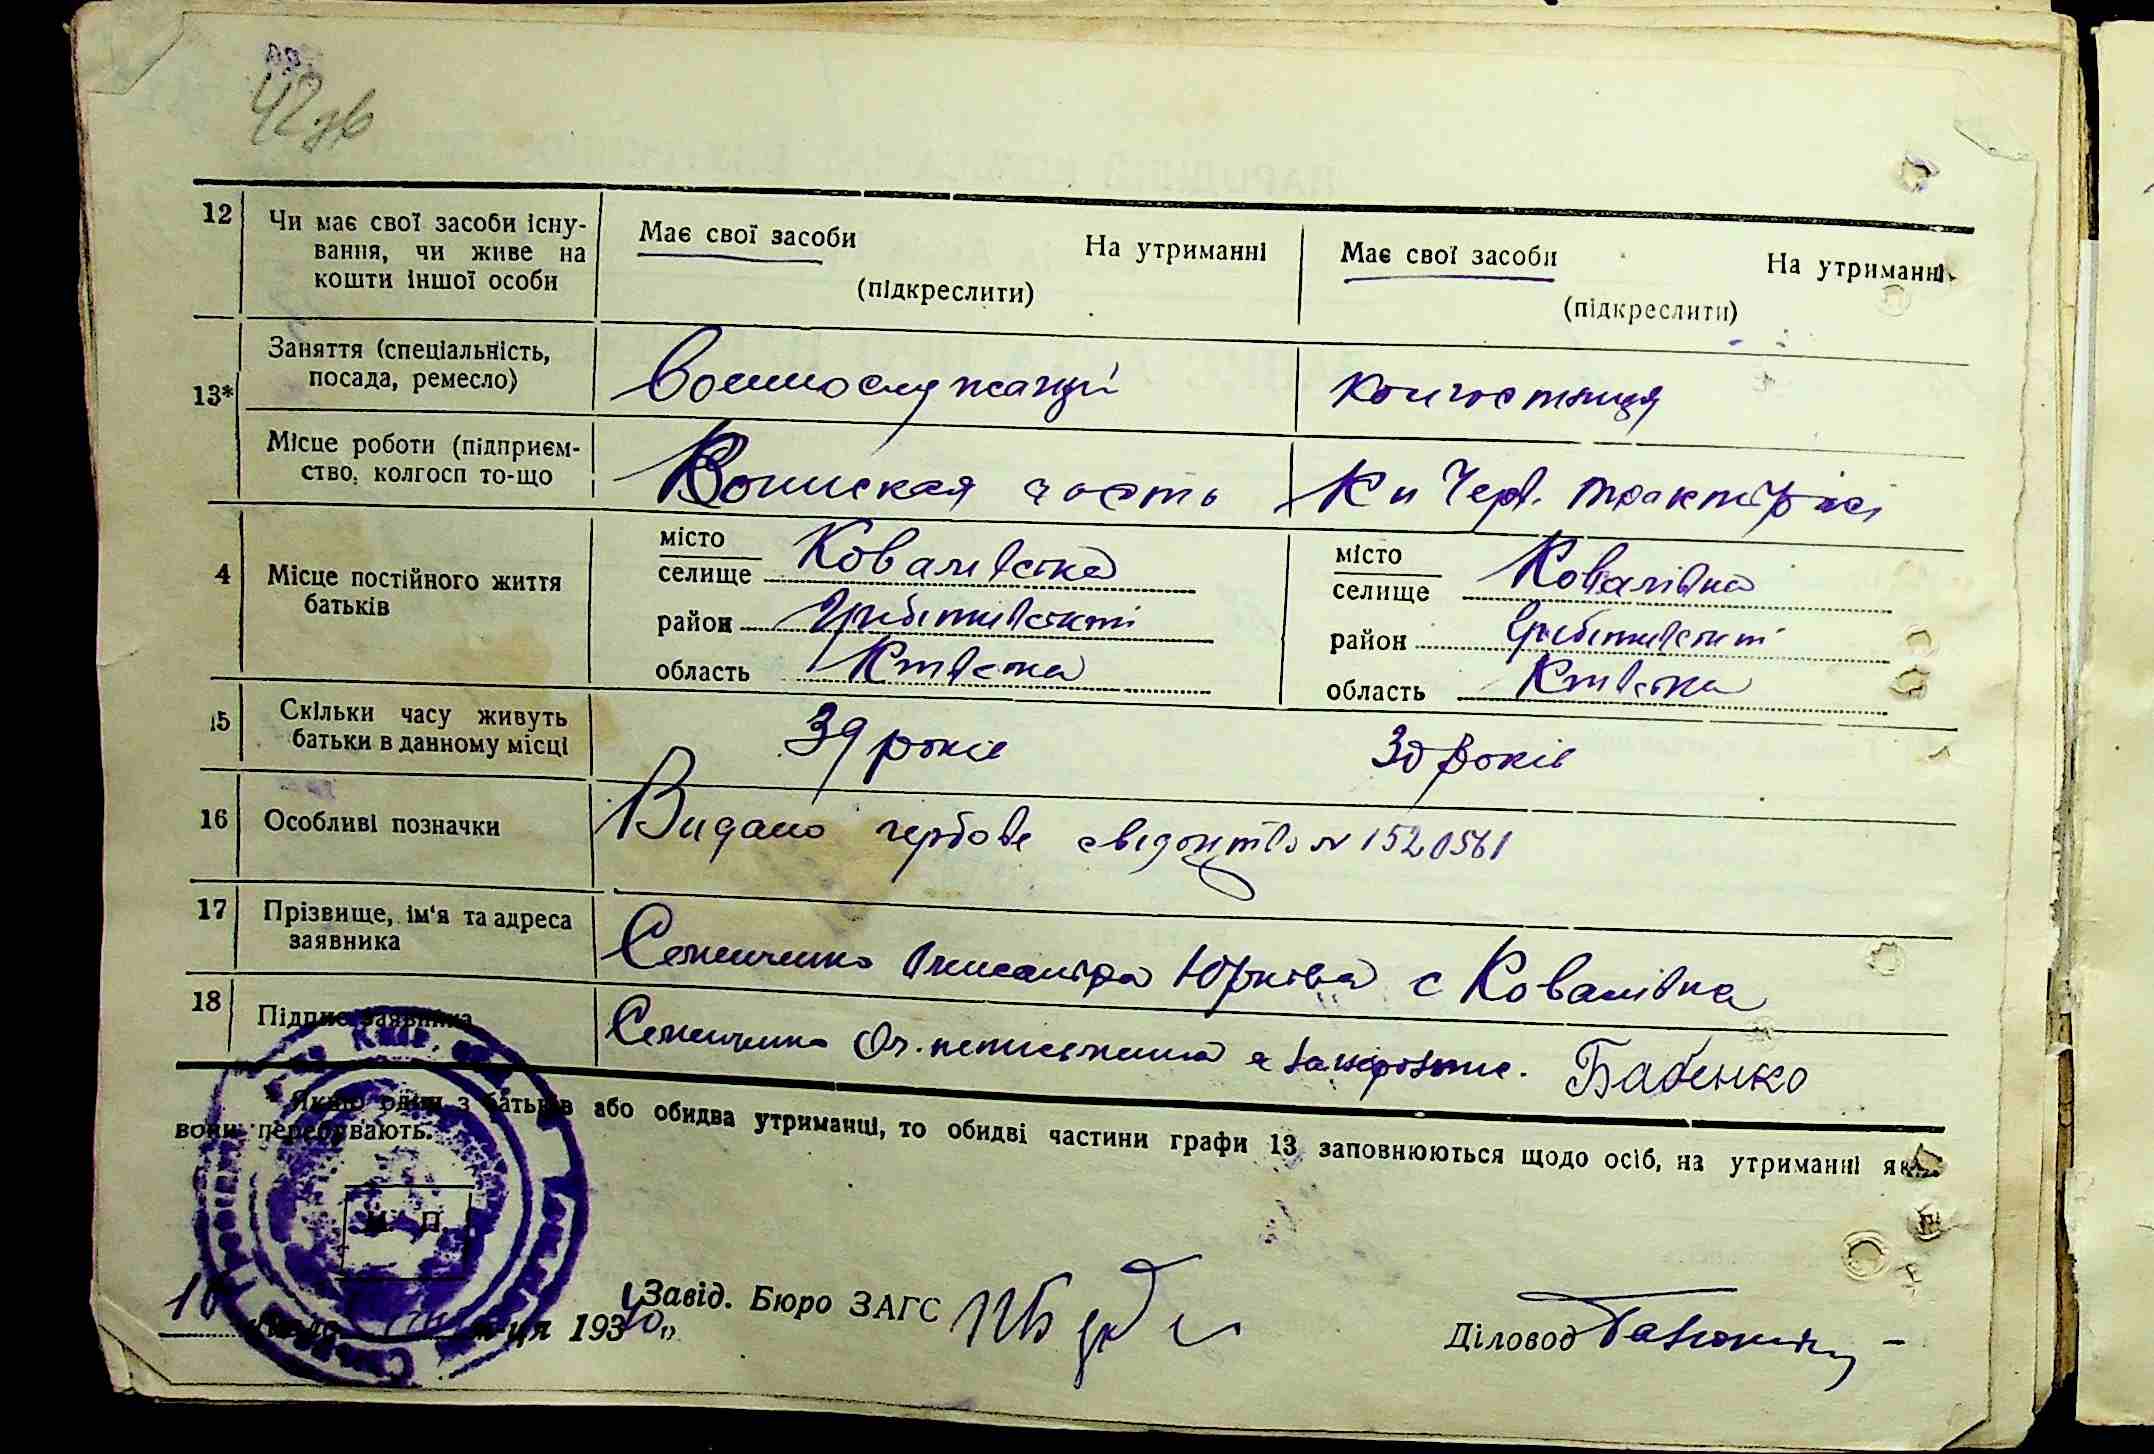 42зв
12 Чи має свої засоби існу-
вання, чи живе на
кошти іншої особи
Має свої засоби На утриманні
(підкреслити)
Має свої засоби На утриманні
(підкреслити)
13* Заняття (спеціальність,
посада, ремесло)
Воєннослужащі
колгоспниця
Місце роботи (підприєм-
ство, колгосп то-що
Воинская часть
Черв.
4 Місце постійного життя
батьків
місто
селище Ковалівка
район Гребінківський
область Київська
місто
селище Ковалівка
район Гребінківський
область Київська
15 Скільки часу живуть
батьки в данному місці
39 років
30 років
16 Особливі позначки
Видано гербове свідоцтво № 1520561
17 Прізвище, ім'я та адреса
заявника
Семенченко Олександра Юрківна с Ковалівка
18 Підпис заявника
Семенченко Ол. неписьменна Бабенко
* Якщо один з батьків або обидва утриманці, то обидві частини графи 13 заповнюються щодо осіб, на утриманні яких
вони перебувають.
М. П.
Завід. Бюро ЗАГС
Діловод
м-ця 1940